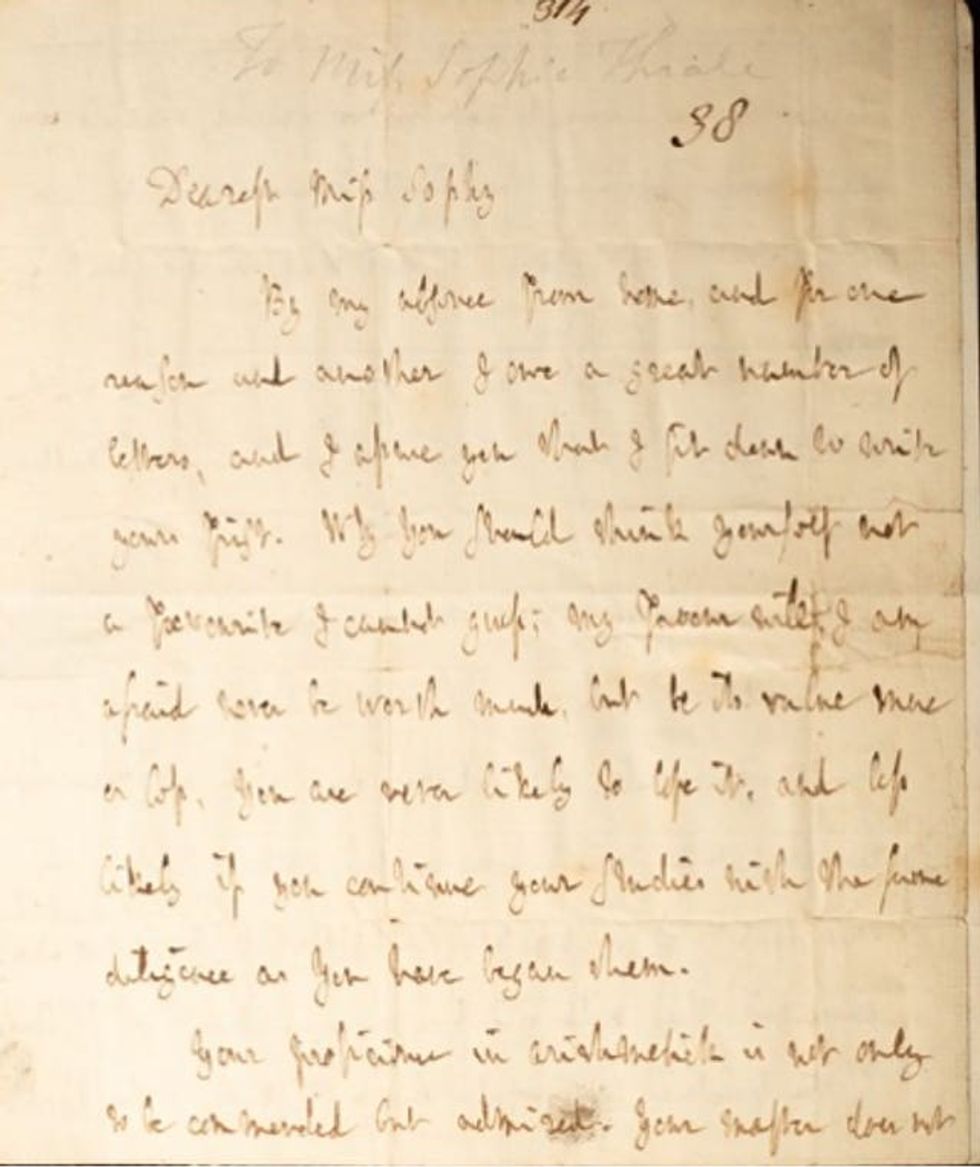 314
To Miss Sophie Thrale
38
Dearest Miss Sophy
By my absence from home, and for one
reason and another I owe a great number of
letters, and I assure you that I sit down to write
yours first. Why you should think yourself not
a favourite I cannot guess; my favour will, I am
afraid never be worth much, but be its value more
or less, you are never likely to lose it, and less
likely if you continue your studies with the same
diligence as you have began them.
Your proficience in arithmetick is not only
to be commended but admired. Your master does not